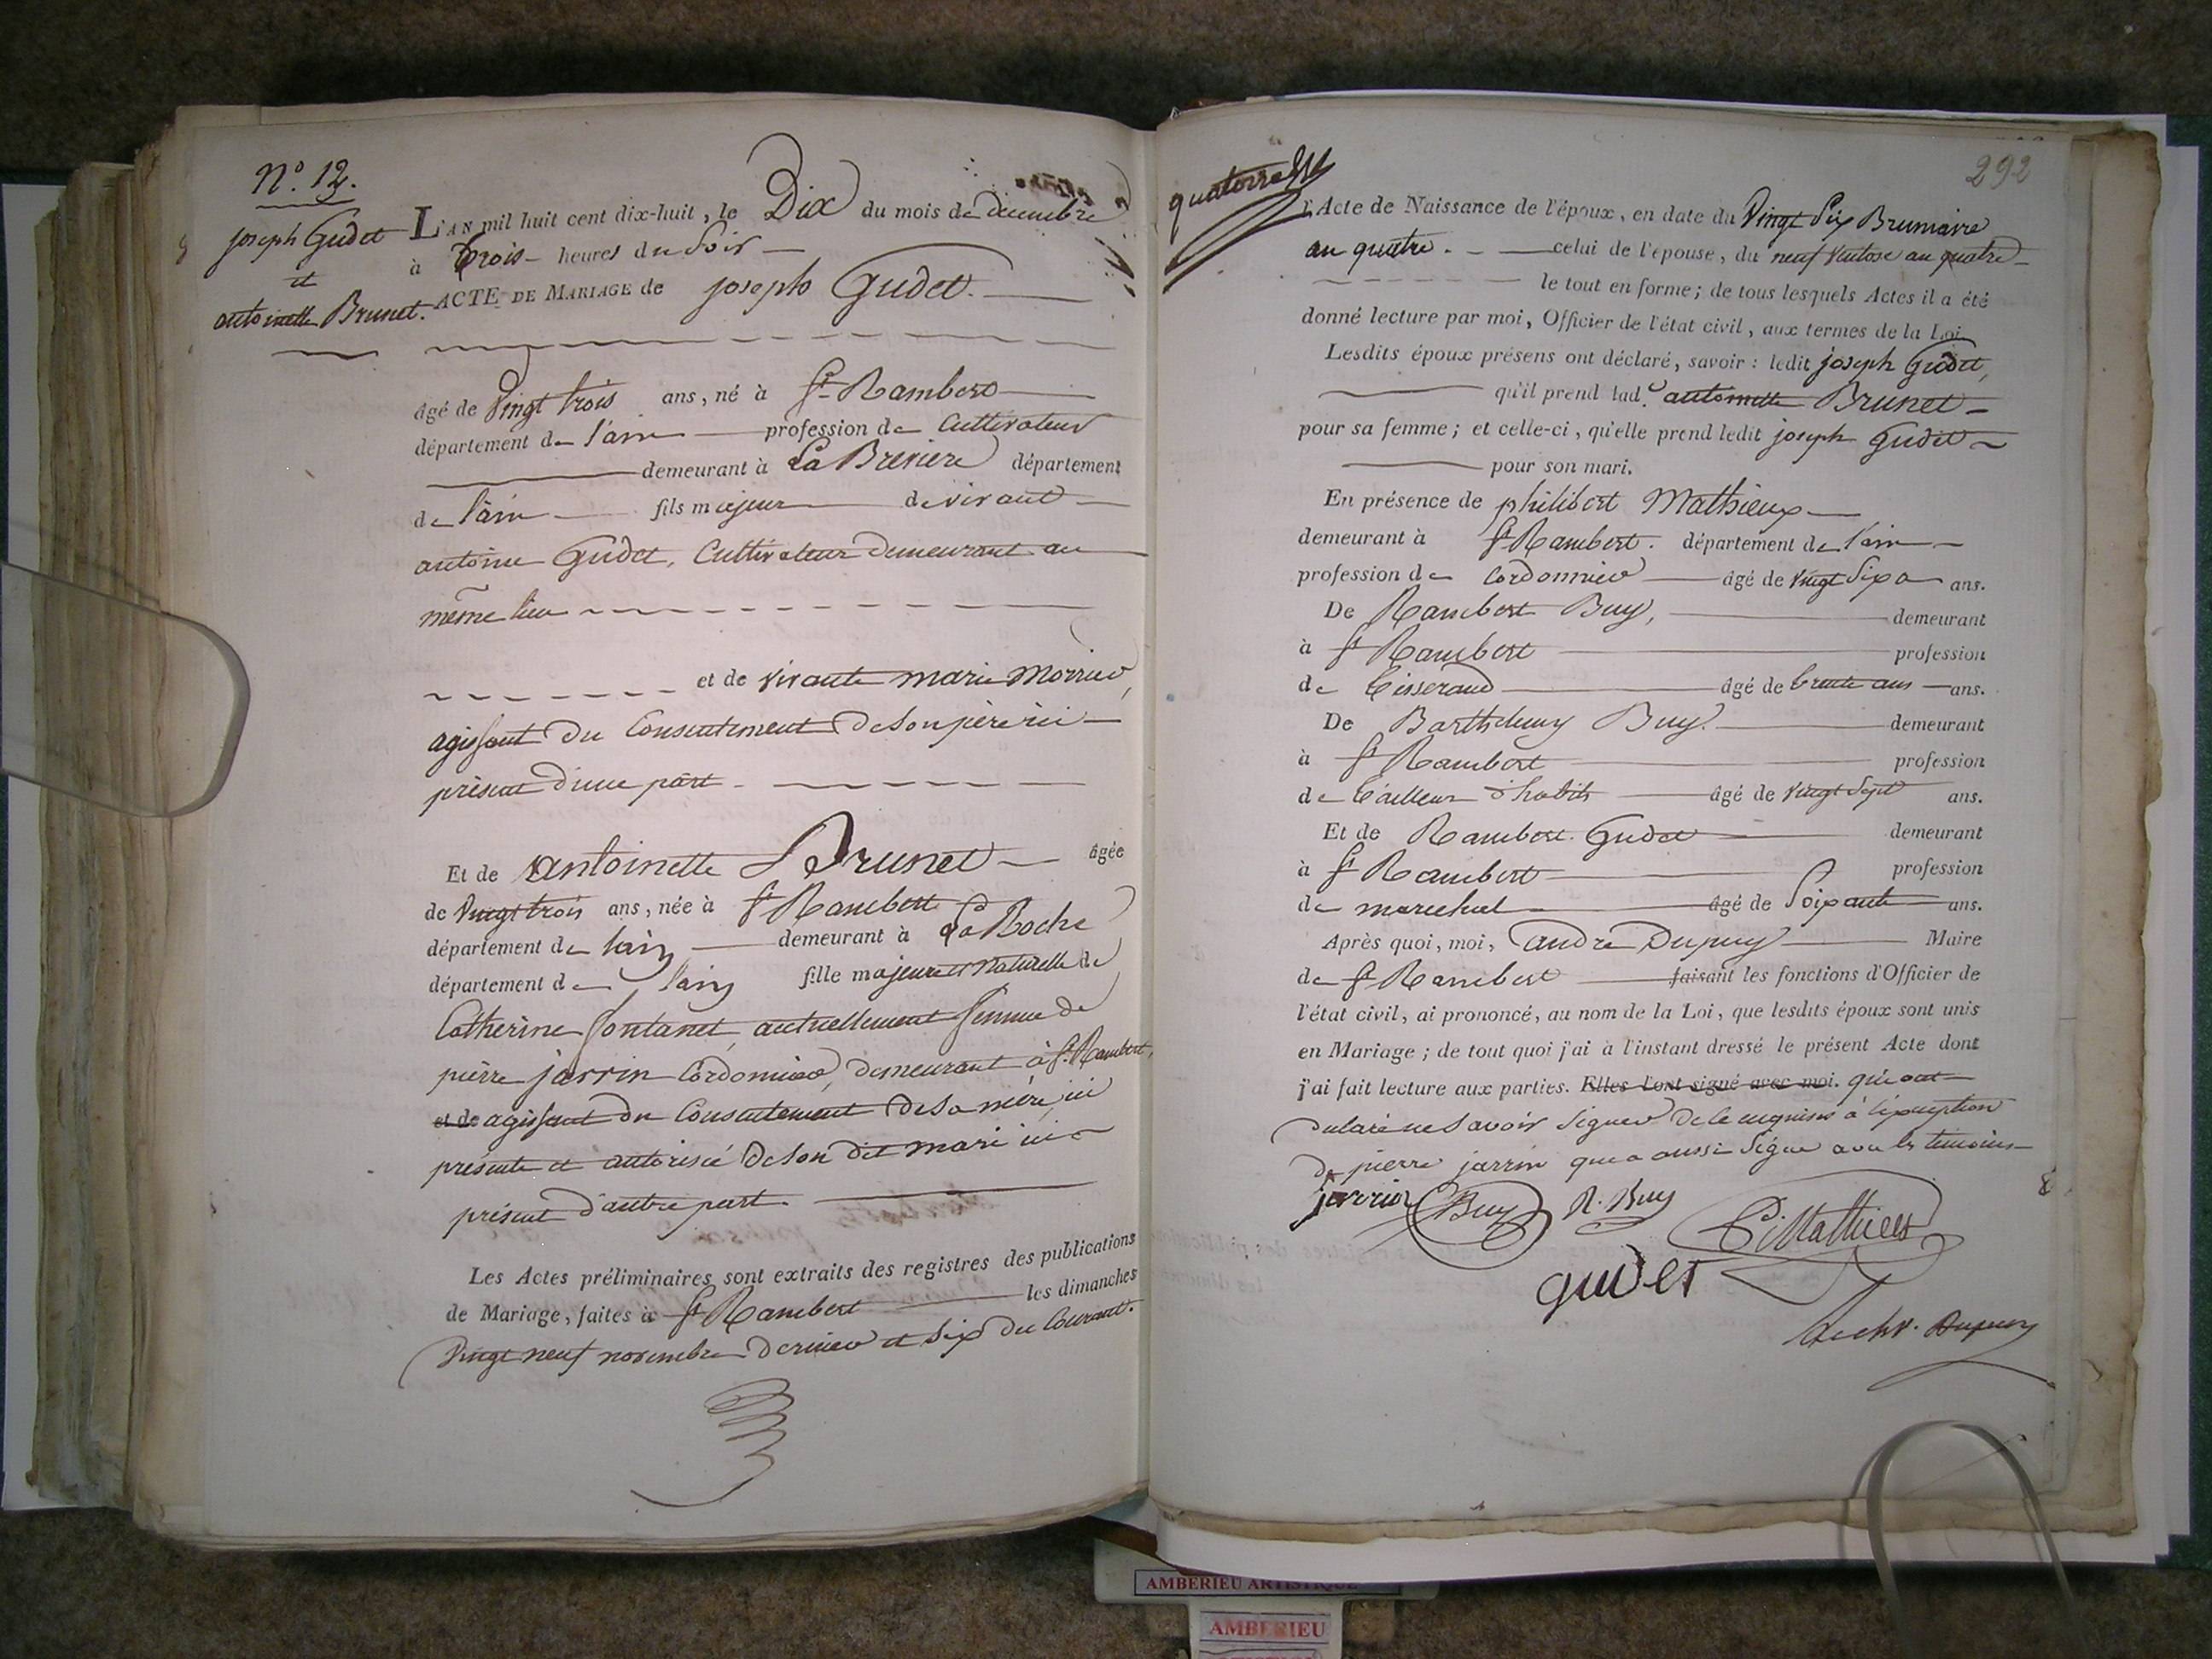 N.º 12.
joseph Gudet
et
antoinette Brunet.
L'AN mil huit cent dix-huit, le Dix du mois de decembre
à trois heures du Soir
ACTE DE MARIAGE de joseph Gudet.
âgé de Vingt trois ans, né à St Rambert
département de l'ain profession de Cultivateur
demeurant à La Breviere département
de l'ain fils majeur de vivant
antoine Gudet, Cultivateur demeurant au
même lieu
et de vivante marie
agissant du Consentement de son père ici
présent d'une part
Et de antoinette Brunet âgée
de Vingt trois ans, née à St Rambert
département de l'ain demeurant à La Roche
département de l'ain fille majeure et naturelle de
Catherine fontanet, actuellement femme de
pierre jarrin Cordonnier, demeurant à St. Rambert,
et de agissant du Consentement de sa mère, ici
présente et autorisée de son dit mari ici
présent d'autre part.
Les Actes préliminaires sont extraits des registres des publications
de Mariage, faites à St Rambert les dimanches
Vingt neuf novembre dernier et Six du Courant.
292
l'Acte de Naissance de l'époux, en date du Vingt Six Brumaire
an quatre. celui de l'épouse, du neuf Ventose an quatre
le tout en forme; de tous lesquels Actes il a été
donné lecture par moi, Officier de l'état civil, aux termes de la Loi.
Lesdits époux présens ont déclaré, savoir: ledit joseph Gudet,
qu'il prend lad.e antoinette Brunet
pour sa femme; et celle-ci, qu'elle prend ledit joseph Gudet
pour son mari.
En présence de philibert Mathieux
demeurant à St Rambert. département de l'ain
profession de Cordonnier âgé de Vingt Six ans.
De Rambert Buy, demeurant
à St Rambert profession
de Tisserand âgé de trente ans ans.
De Barthelemy Buy. demeurant
à St Rambert profession
de tailleur d'habits âgé de Vingt Sept ans.
Et de Rambert Gudet demeurant
à St Rambert profession
de marechal âgé de Soixante ans.
Après quoi, moi, andré Dupuy Maire
de St Rambert faisant les fonctions d'Officier de
l'état civil, ai prononcé, au nom de la Loi, que lesdits époux sont unis
en Mariage; de tout quoi j'ai à l'instant dressé le présent Acte dont
j'ai fait lecture aux parties. Elles l'ont signé avec moi. qui ont
declaré ne Savoir Signer de ce requises à l'exception
de pierre jarrin qui a aussi Signé avec les temoins
jarrin Buy R. Buy P. Mathieux
gudet
Dupuy
AMBERIEU ARTISTIQUE
AMBERIEU